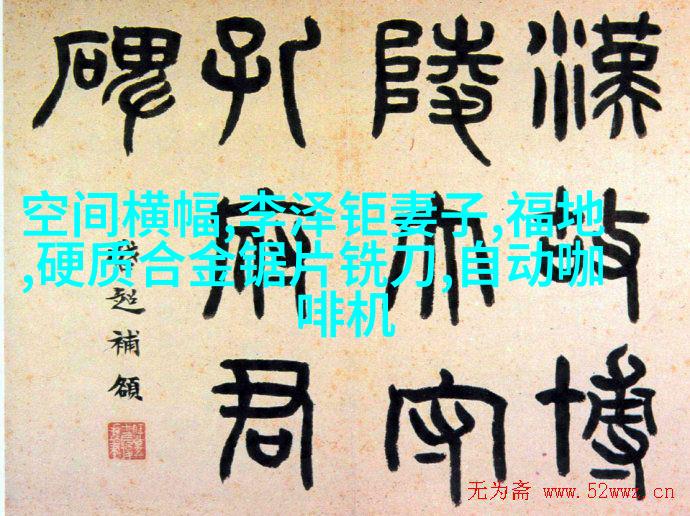 漢故博
陵太守
孔府君
碑
超補額
空间横幅,李泽钜妻子,福地
,硬质合金锯片铣刀,自动咖
啡机
无为斋 www.52wwz.cn